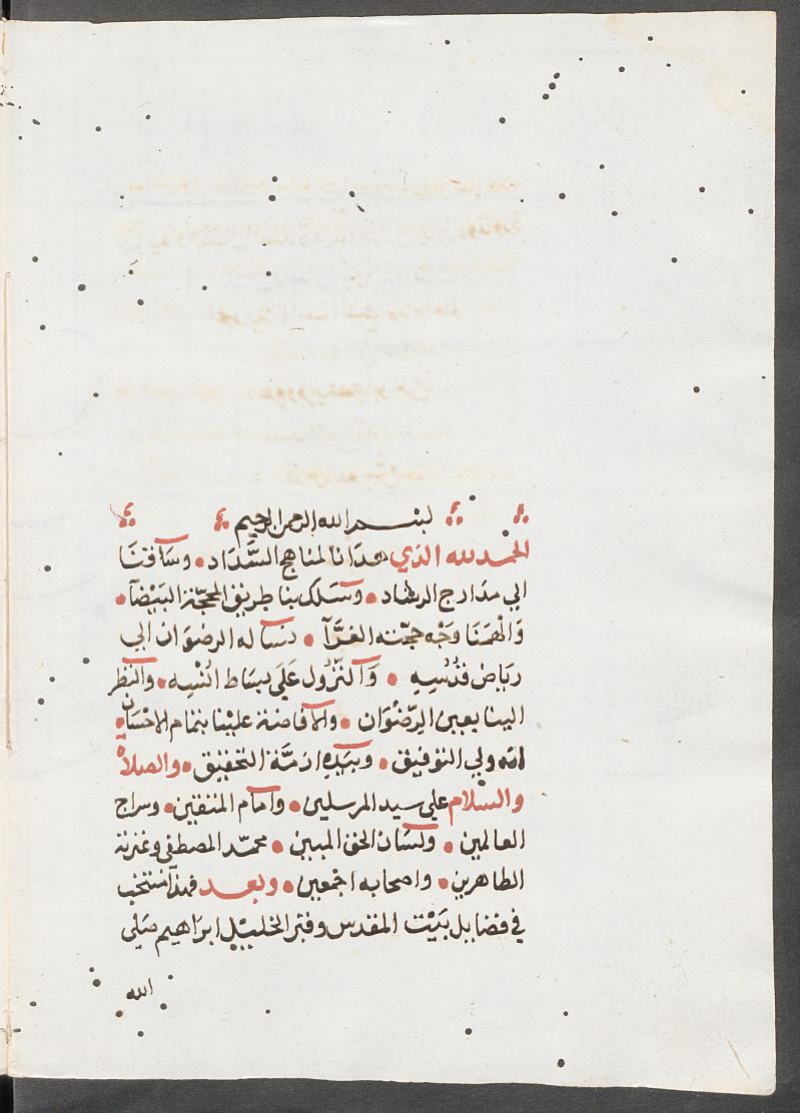 بسم الله الرحمن الرحيم
الحمد لله الذي هدانا لمناهج السَّدَاد • وسَاقنَا
الي مدَارج الرشاد • وسَلك بنا طريق المحجّة البَيْضَآ •
وَالْهَمَنَا وَجْه حجّته الغَرَّآ • نسَاله الرضوَان الي
ريَاض قدُسِهِ • وَالنّزُول عَلَي بسَاط انُسِه • والنظر
الينا بعين الرِّضْوَان • والافاضة عليْنا بتمام الاحْسَان •
انه ولي التوفيق • وبيَدِه ازمَّة التحقيق • والصلاة
والسلام علي سيد المرسلين • وامام المتقين • وسراج
العالمين • ولسَان الحق المبين • محمّد المصطفي وعترته
الطاهرين • واصحابه اجمعين • وبعد فهذا منتخب
في فضايل بَيْت المقدس وقبر الخليْل ابرَاهيم صَلي
الله